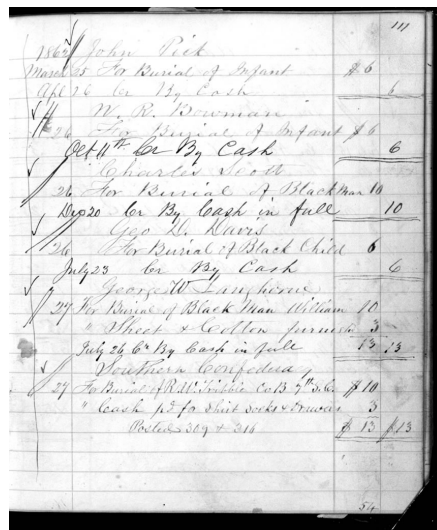 111
1862 John Pick
March 25 For Burial of Infant $ 6
Apl 26 Cr By Cash 6
W. R. Bowman
26 For Burial of Infant $ 6
Oct 11th Cr By Cash 6
Charles Scott
26 For Burial of Black Man 10
Dec 20 Cr By Cash in full 10
Geo D. Davis
26 For Burial of Black Child 6
July 23 Cr By Cash 6
George W Langhorne
27 For Burial of Black Man William 10
" Sheet & Cotton furnish 3
July 26 Cr By Cash in full 13 13
Southern Confedea
27 For Burial of R. W. Co B 7th S.C. $ 10
" Cash pd for Shirt socks & Drawers 3
Posted 309 & 316 $ 13 $ 13
54